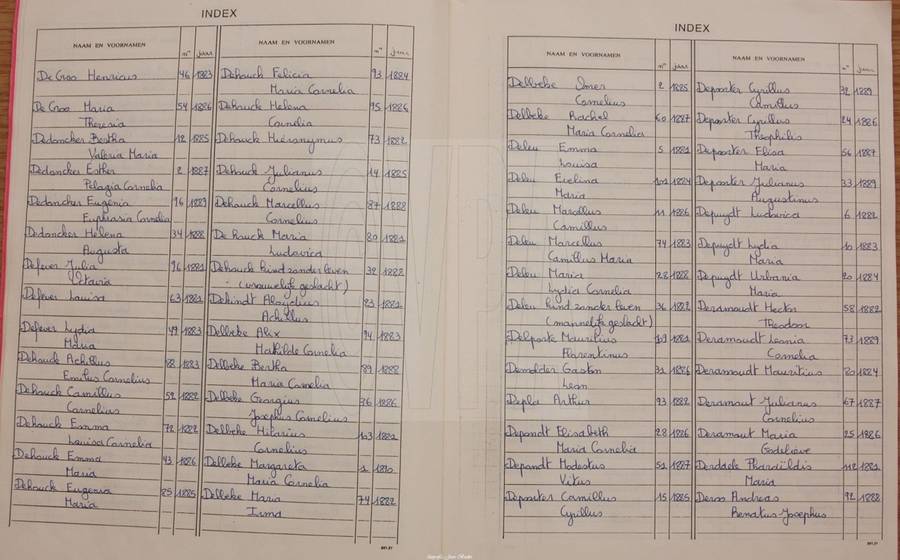 INDEX
NAAM EN VOORNAMEN n° jaar
De Groo Henricus 46 1883
De Groo Maria 54 1886
Theresia
Dedoncker Bertha 12 1885
Valeria Maria
Dedoncker Esther 2 1887
Pelagia Cornelia
Dedoncker Eugenia 96 1889
Euphrasia Cornelia
Dedoncker Helena 34 1888
Augusta
Defever Julia 96 1881
Octavia
Defever Louisa 63 1881
Defever Lydia 49 1883
Maria
Dehouck Achillus 88 1883
Emilius Cornelius
Dehouck Camillus 52 1882
Cornelius
Dehouck Emma 72 1882
Louisa Cornelia
Dehouck Emma 43 1886
Maria
Dehouck Eugenia 85 1885
Maria
NAAM EN VOORNAMEN n° jaar
Dehouck Felicia 93 1884
Maria Cornelia
Dehouck Helena 95 1886
Cornelia
Dehouck Hieronymus 73 1882
Dehouck Julianus 14 1885
Cornelius
Dehouck Marcellus 87 1888
Cornelius
Dehouck Maria 80 1881
Ludovica
Dehouck kind zonder leven 32 1882
(vrouwelijk geslacht)
Dekindt Aloydius 23 1881
Achillus
Delbeke Alix 94 1883
Mathilde Cornelia
Delbeke Bertha 89 1888
Maria Cornelia
Delbeke Georgius 36 1886
Josephus Cornelius
Delbeke Hilarius 103 1881
Cornelius
Delbeke Margareta 1 1890
Maria Cornelia
Delbeke Maria 74 1882
Irma
INDEX
NAAM EN VOORNAMEN n° jaar
Delbeke Omer 2 1885
Cornelius
Delbeke Rachel 60 1887
Maria Cornelia
Deleu Emma 5 1881
Louisa
Deleu Evelina 102 1884
Maria
Deleu Marcellus 11 1886
Camillus
Deleu Marcellus 74 1883
Camillus Maria
Deleu Maria 28 1888
Lydia Cornelia
Deleu kind zonder leven 36 1882
(mannelijk geslacht)
Delporte Mauritius 101 1882
Florentinus
Demolder Gaston 31 1886
Leon
Depla Arthur 93 1882
Depondt Elisabeth 28 1886
Maria Cornelia
Depondt Modestus 51 1887
Vitus
Deposter Camillus 15 1885
Cyrillus
NAAM EN VOORNAMEN n° jaar
Deposter Cyrillus 32 1889
Camillus
Deposter Cyrillus 24 1886
Theophilis
Deposter Elisa 56 1887
Maria
Deposter Julianus 33 1889
Augustinus
Depuydt Ludovica 6 1882
Depuydt Lydia 10 1883
Maria
Depuydt Urbania 20 1884
Maria
Deramoudt Hector 58 1882
Theodoor
Deramoudt Leonia 73 1889
Cornelia
Deramoudt Mauritius 80 1884
Deramout Julianus 67 1887
Cornelius
Deramout Maria 25 1886
Godelieve
Derdaele Pharaildis 112 1881
Maria
Deroo Andreas 92 1888
Renatus-Josephus